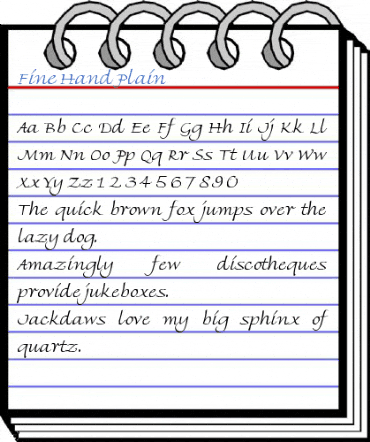 Fine Hand Plain
Aa Bb Cc Dd Ee Ff Gg Hh Ii Jj Kk Ll
Mm Nn Oo Pp Qq Rr Ss Tt Uu Vv Ww
Xx Yy Zz 1 2 3 4 5 6 7 8 9 0
The quick brown fox jumps over the
lazy dog.
Amazingly few discotheques
provide jukeboxes.
Jackdaws love my big sphinx of
quartz.